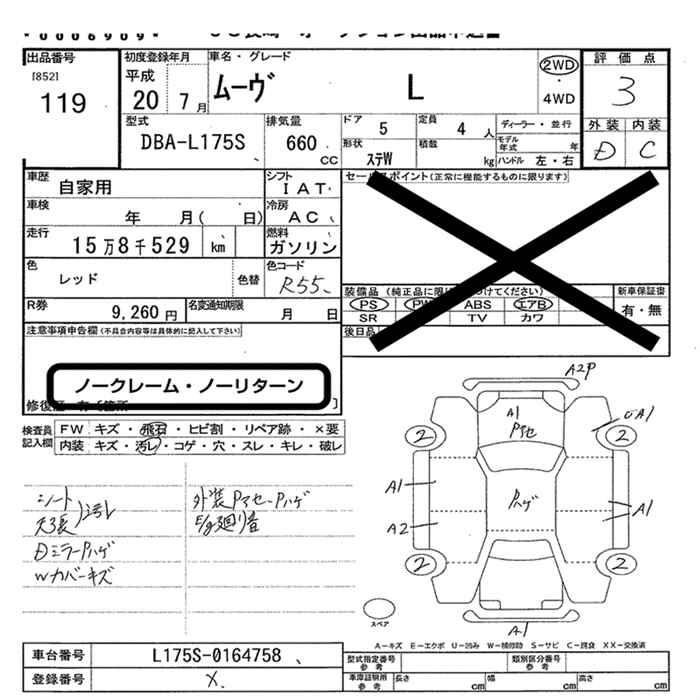 出品番号
[852]
119
初度登録年月
平成
20 7月
車名・グレード
ムーヴ L
2WD
4WD
評価点
3
外装 内装
D C
型式
DBA-L175S
排気量
660
CC
ドア
5
定員
4 人
形状
ステW
積載
kg
ディーラー・並行
モデル年式 年
ハンドル 左・右
車歴
自家用
シフト
IAT
セールスポイント(正常に機能するものに限ります)
車検
年 月( 日)
冷房
AC
走行
15万8千529 km
燃料
ガソリン
色
レッド
色替
色コード
R55
装備品
PS PW ABS エアB
SR TV カワ
新車保証書
有・無
後日品
R券
9,260円
名変通知期限
月 日
注意事項申告欄(不具合内容等は具体的に記入して下さい)
ノークレーム・ノーリターン
検査員
記入欄
FW キズ・飛石・ヒビ割・リペア跡・×要
内装 キズ・汚レ・コゲ・穴・スレ・キレ・破レ
シート
天張 汚レ
DミラーPハゲ
Wカバーキズ
外装Pアセ-Pハゲ
E/g廻り音
A2P
A1
Pアセ
UA1
2
2
A1
Pハゲ
A1
A2
2
2
スペア
A1
A-キズ E-エクボ U-凹み W-補修跡 S-サビ C-腐食 XX-交換済
車台番号
L175S-0164758
登録番号
X
型式指定番号
参考
類別区分番号
参考
車庫証明用
参考
長さ cm
幅 cm
高さ cm